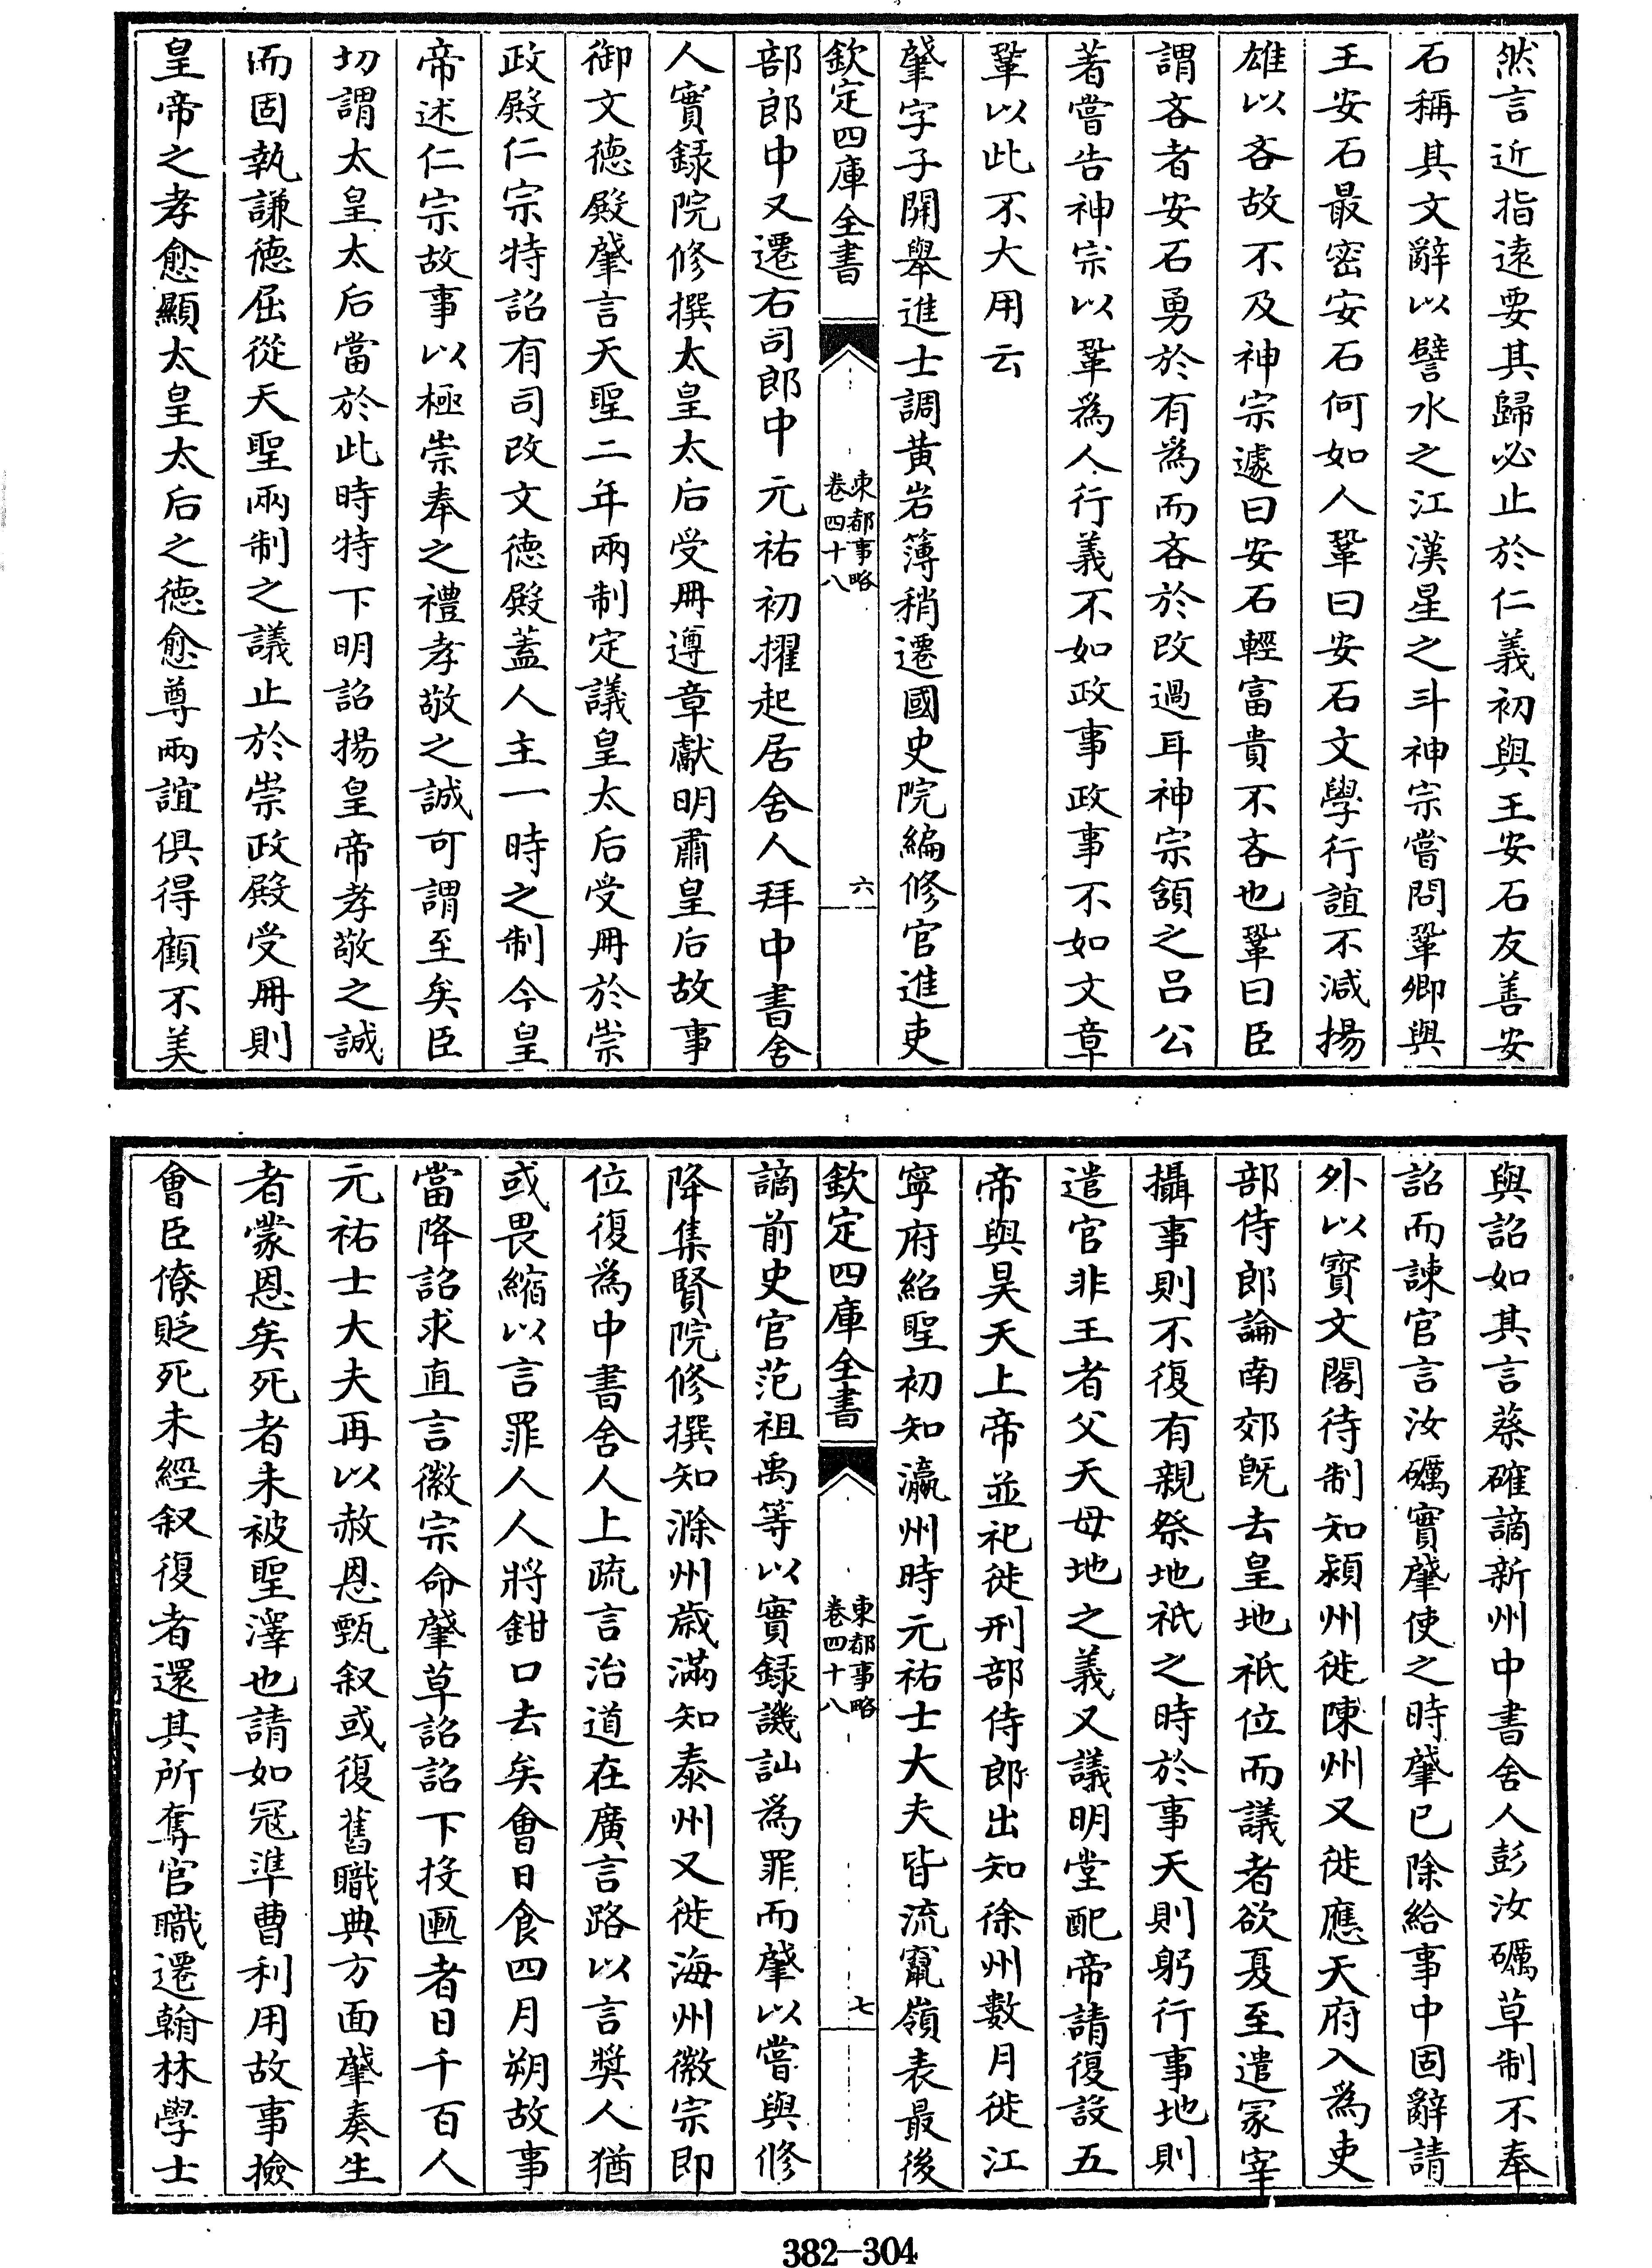 然言近指遠要其歸必止於仁義初與王安石友善安
石稱其文辭以譬水之江漢星之斗神宗嘗問鞏卿與
王安石最密安石何如人鞏曰安石文學行誼不減揚
雄以吝故不及神宗遽曰安石輕富貴不吝也鞏曰臣
謂吝者安石勇於有為而吝於改過耳神宗頷之呂公
著嘗告神宗以鞏為人行義不如政事政事不如文章
鞏以此不大用云
肇字子開舉進士調黃岩簿稍遷國史院編修官進吏
欽定四庫全書
東都事略
卷四十八
六
部郎中又遷右司郎中元祐初擢起居舍人拜中書舍
人實錄院修撰太皇太后受冊遵章獻明肅皇后故事
御文德殿肇言天聖二年兩制定議皇太后受冊於崇
政殿仁宗特詔有司改文德殿蓋人主一時之制今皇
帝述仁宗故事以極崇奉之禮孝敬之誠可謂至矣臣
切謂太皇太后當於此時特下明詔揚皇帝孝敬之誠
而固執謙德屈從天聖兩制之議止於崇政殿受冊則
皇帝之孝愈顯太皇太后之德愈尊兩誼俱得顧不美
與詔如其言蔡確謫新州中書舍人彭汝礪草制不奉
詔而諫官言汝礪實肇使之時肇已除給事中固辭請
外以寳文閣待制知潁州徙陳州又徙應天府入為吏
部侍郎論南郊既去皇地祇位而議者欲夏至遣冢宰
攝事則不復有親祭地祇之時於事天則躬行事地則
遣官非王者父天母地之義又議明堂配帝請復設五
帝與昊天上帝並祀徙刑部侍郎出知徐州數月徙江
寧府紹聖初知瀛州時元祐士大夫皆流竄嶺表最後
欽定四庫全書
東都事略
卷四十八
七
謫前史官范祖禹等以實錄譏訕為罪而肇以嘗與修
降集賢院修撰知滁州歲滿知泰州又徙海州徽宗即
位復為中書舍人上疏言治道在廣言路以言奬人猶
或畏縮以言罪人人將鉗口去矣會日食四月朔故事
當降詔求直言徽宗命肇草詔詔下投匭者日千百人
元祐士大夫再以赦恩甄叙或復舊職典方面肇奏生
者蒙恩矣死者未被聖澤也請如冦準曹利用故事撿
會臣僚貶死未經叙復者還其所奪官職遷翰林學士
382-304